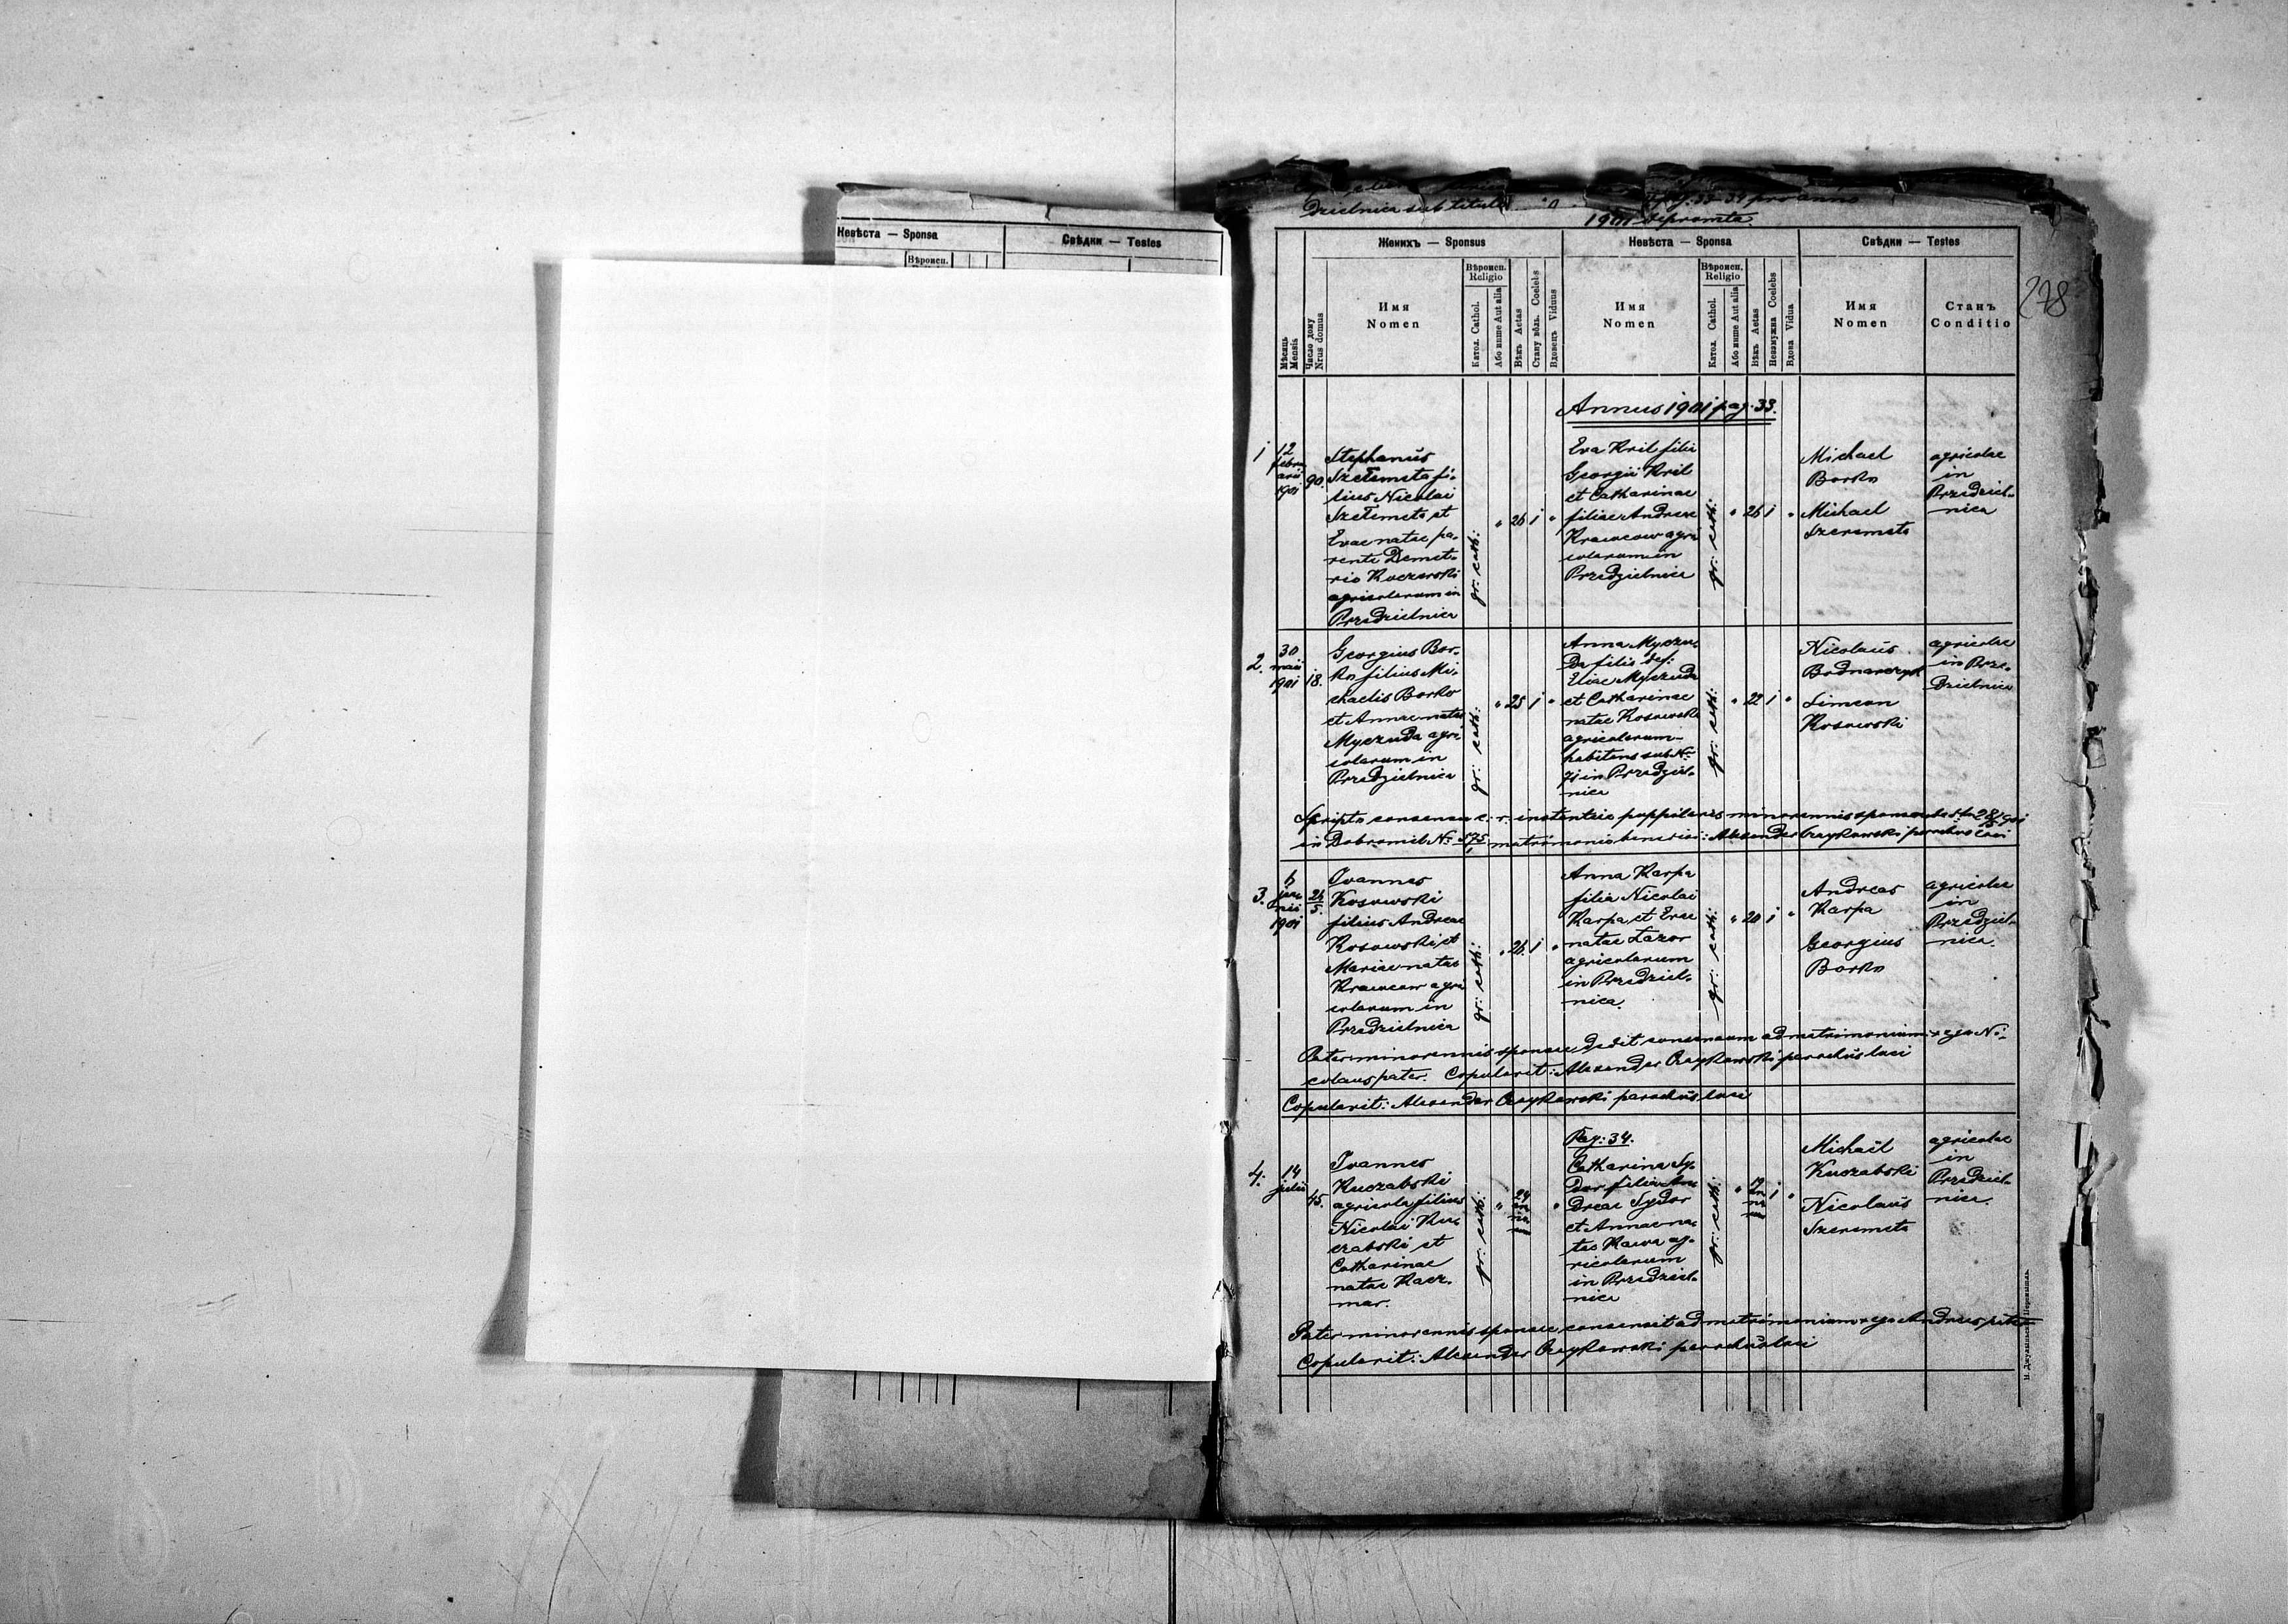 Невѣста — Sponsa
Свѣдки — Testes
Вѣроисп.
Dzielnica sub titulo
pag. 33-34 pro anno
1901 depromta.
Женихъ — Sponsus
Невѣста — Sponsa
Свѣдки — Testes
Мѣсяць Mensis
Число дому Nrus domus
Имя
Nomen
Вѣроисп.
Religio
Катол. Cathol.
Або инше Aut alia
Вѣкъ Aetas
Стану вольн. Coelebs
Вдовець Viduus
Имя
Nomen
Вѣроисп.
Religio
Катол. Cathol.
Або инше Aut alia
Вѣкъ Aetas
Незамужна Coelebs
Вдова Vidua
Имя
Nomen
Станъ
Conditio
278
Annus 1901 pag. 33.
1
12
febru
arii
1901
90.
Stephanus
Szeremeta fi-
lius Nicolai
Szeremeta et
Evae natae pa-
rente Demet-
rio Kuczerski
agricolarum in
Przedzielnica
gr: cath:
" 26 1 "
Eva Kril filia
Georgii Kril
et Catharinae
filiae Andreae
Krawcow agri
colarum in
Przedzielnica
gr: cath:
" 26 1 "
Michael
Borko
Michael
Szeremeta
agricolae
in
Przedziel-
nica
2.
30
maii
1901
18.
Georgius Bor-
ko filius Mi-
chaelis Borko
et Annae natae
Myczuda agri-
colarum in
Przedzielnica
gr: cath:
" 25 1 "
Anna Myczu-
da filia def:
Eliae Myczuda
et Catharinae
natae Kosowski
agricolarum
habitans sub N:
71 in Przedziel-
nica
gr: cath:
" 22 1 "
Nicolaus
Bodnarczyk
Simeon
Kosowski
agricolae
in Prze-
dzielnica
Scripto consensu c. r. instantiae puppilaris minorennis sponsae
in Dobromil N: 575 matrimonio benedixi: Alexander Czajkowski parochus loci
3.
6
ju-
nii
1901
26
Ioannes
Kosowski
filius Andreae
Kosowski et
Mariae natae
Krawcow agri
colarum in
Przedzielnica
gr: cath:
" 26. 1 "
Anna Karpa
filia Nicolai
Karpa et Evae
natae Lazor
agricolarum
in Przedziel-
nica.
gr: cath:
" 20 1 "
Andreas
Karpa
Georgius
Borko
agricolae
in
Przedziel-
nica.
Pater minorennis sponsae dedit consensum ad matrimonium + ego Ni-
colaus pater. Copulavit: Alexander Czajkowski parochus loci
Copulavit: Alexander Czajkowski parochus loci
4.
14
julii
45.
Ioannes
Kuczabski
agricola filius
Nicolai Ku-
czabski et
Catharinae
natae Kacz-
mar.
gr: cath:
" 24 "
Pag: 34.
Catharina Sy-
dor filia An-
dreae Sydor
et Annae na-
tae Kawa ag-
ricolarum
in Przedziel-
nica
gr: cath:
" 19 1 "
Michaël
Kuczabski
Nicolaus
Szeremeta
agricolae
in
Przedziel-
nica.
Pater minorennis sponsae consensit ad matrimonium + ego Andreas pater
Copulavit: Alexander Czajkowski parochus loci